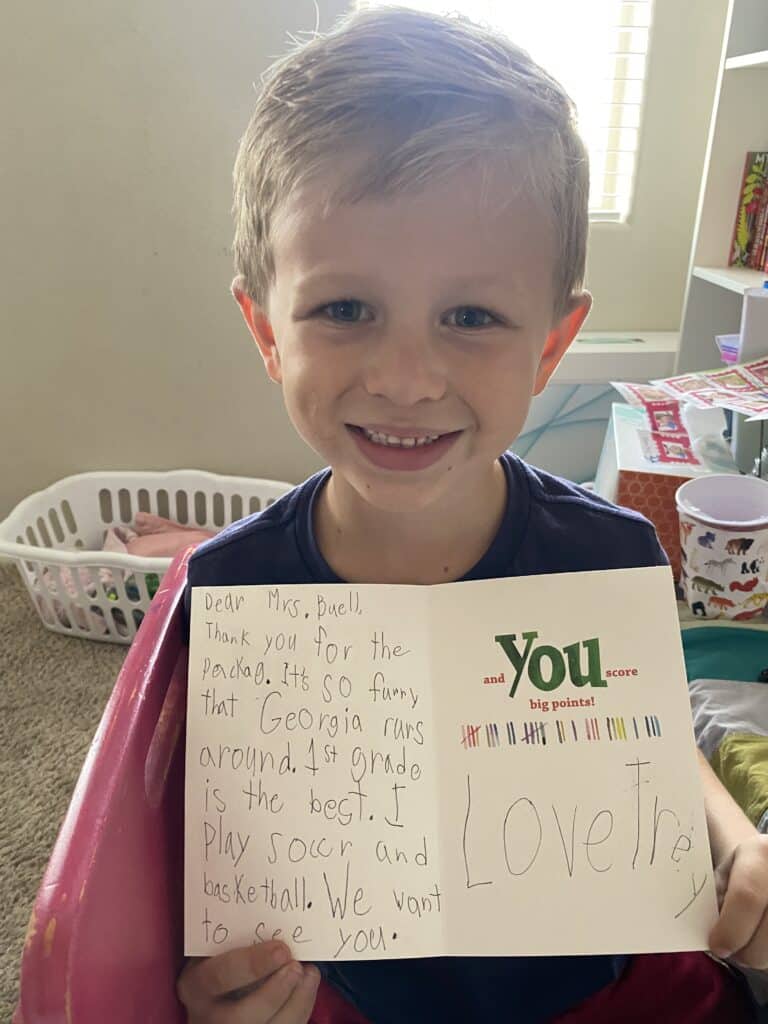 Dear Mrs. Buell,
Thank you for the
packag. It's so funny
that Georgia runs
around. 1st grade
is the best. I
Play soccr and
basketball. We want
to see you.
and You score
big points!
Love Trey